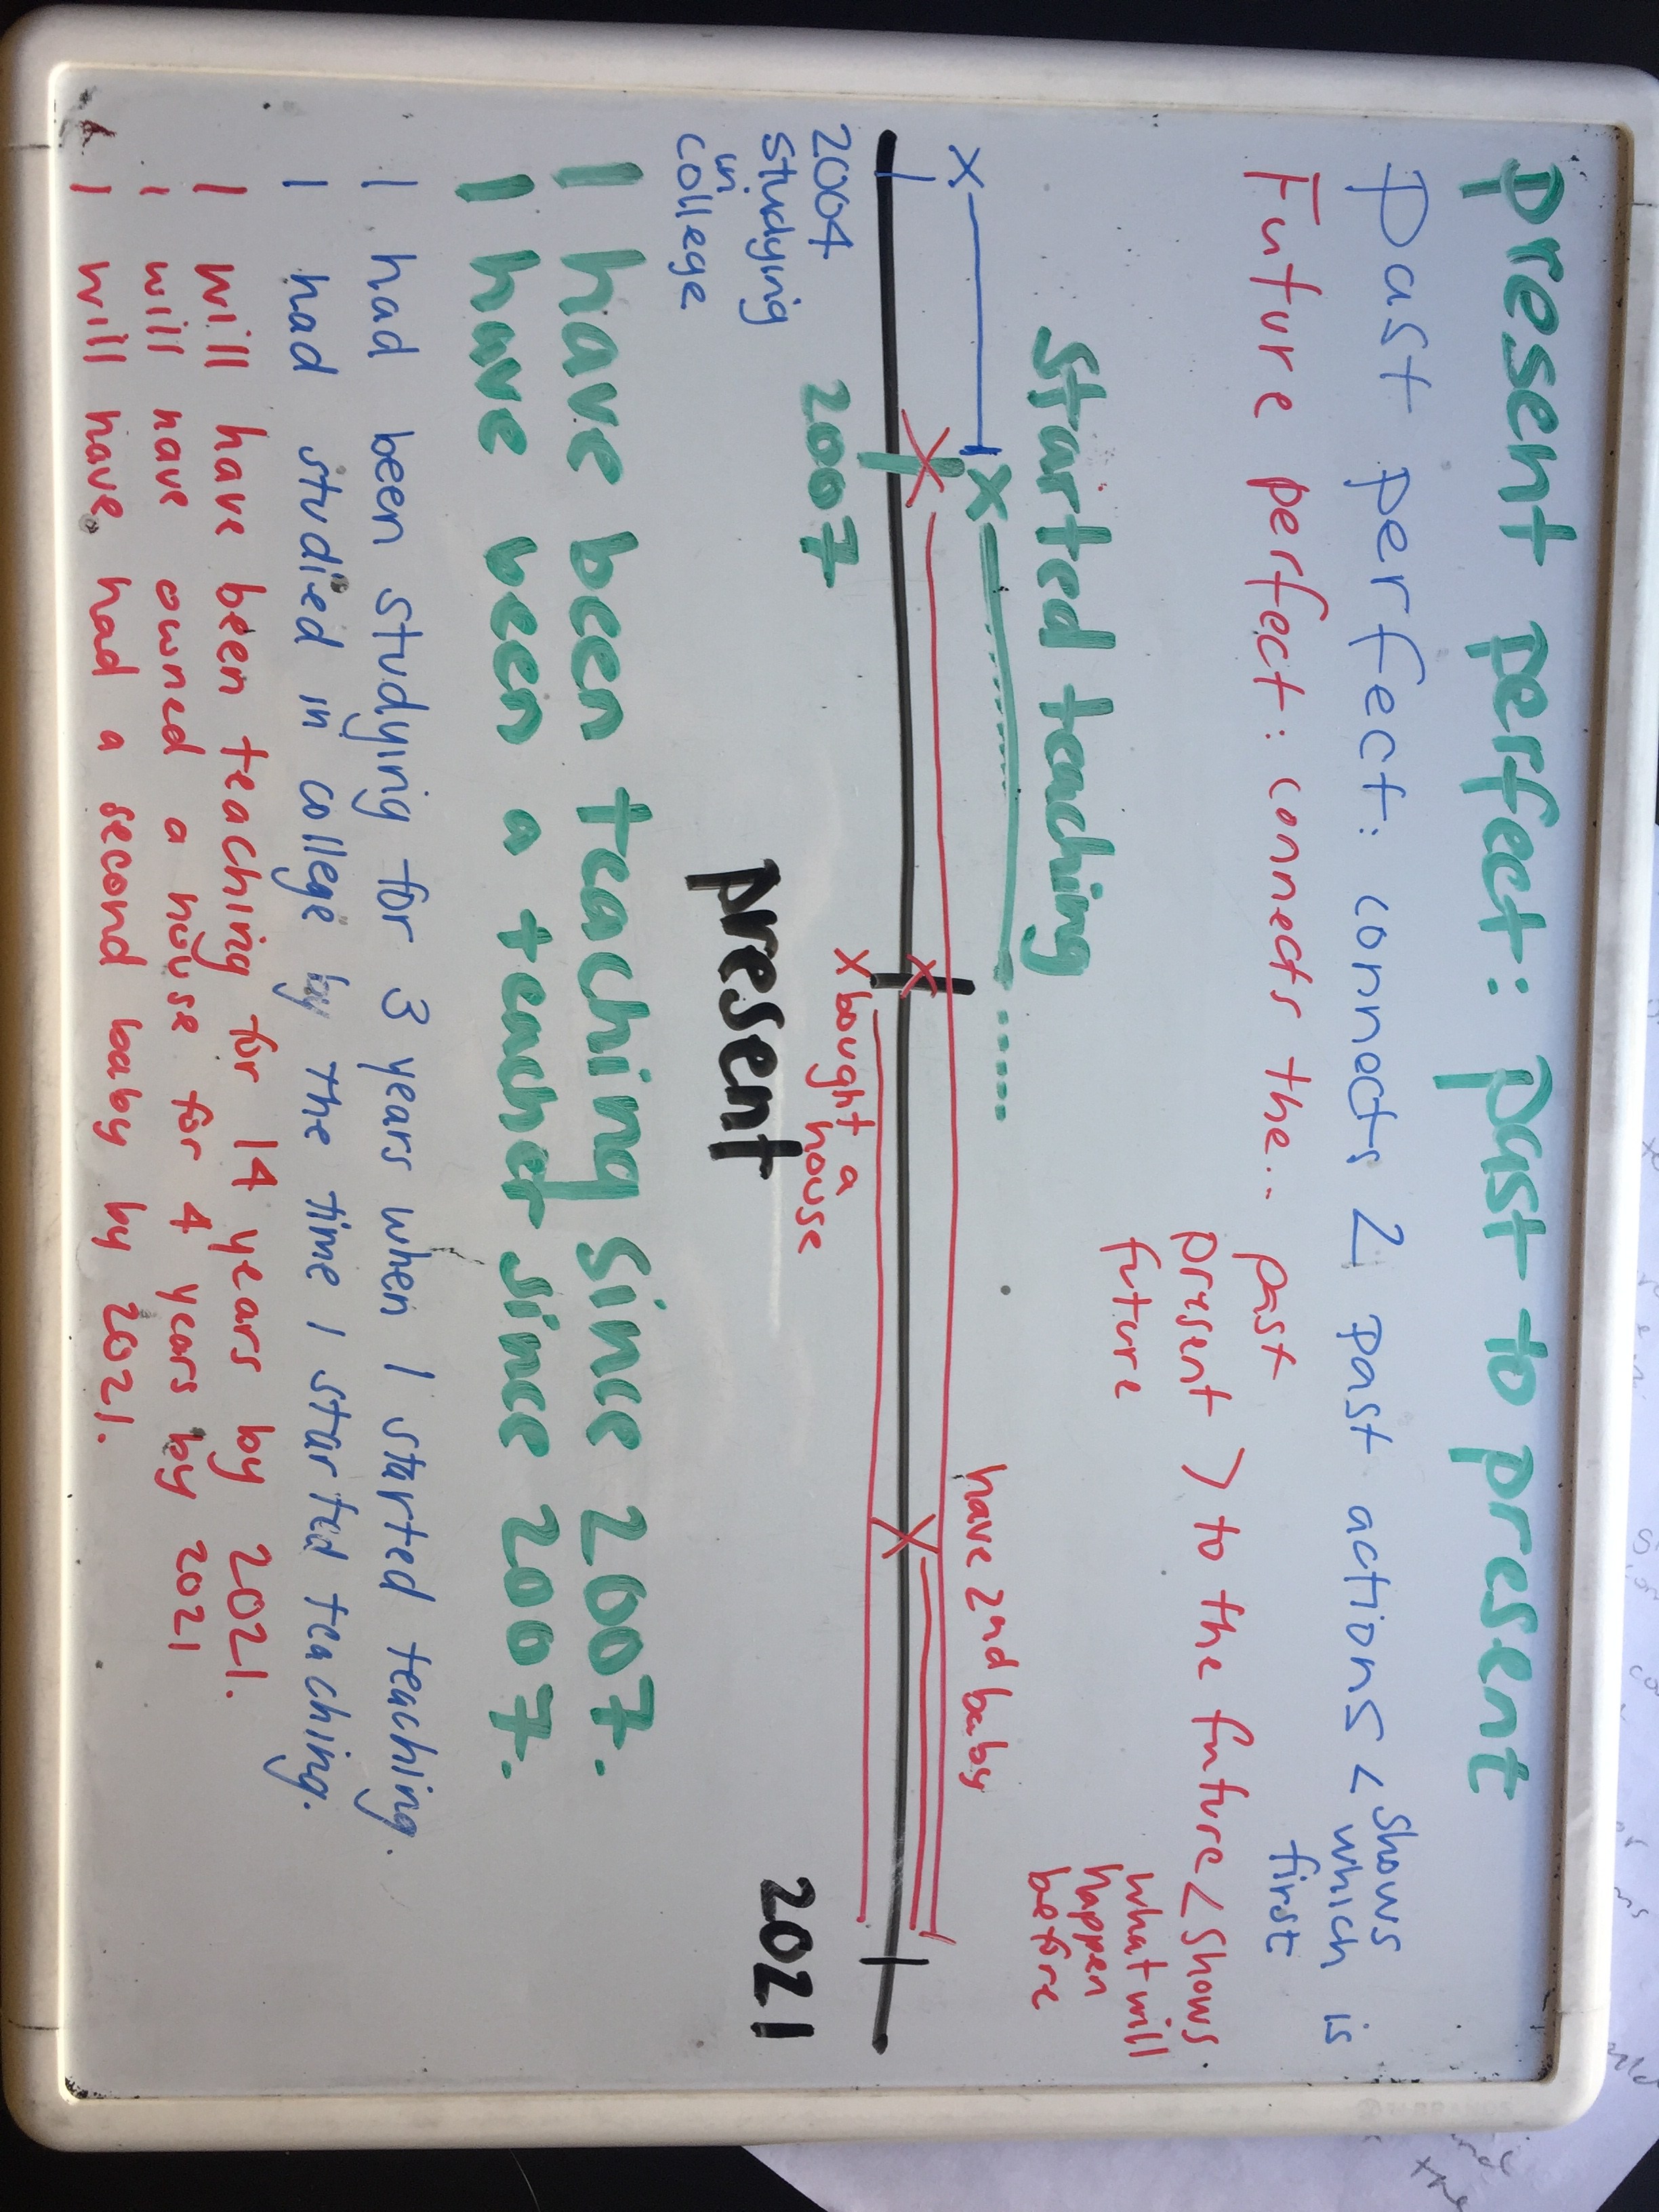 present perfect: past to present
past perfect: connects 2 past actions < shows which is first
Future perfect: connects the.. past present future > to the future < shows what will happen before
have 2nd baby
Started teaching
2004
studying
in
college
2007
bought a
house
present
2021
I have been teaching since 2007.
I have been a teacher since 2007.
I had been studying for 3 years when I started teaching.
I had studied in college by the time I started teaching.
I will have been teaching for 14 years by 2021.
I will have owned a house for 4 years by 2021
I will have had a second baby by 2021.